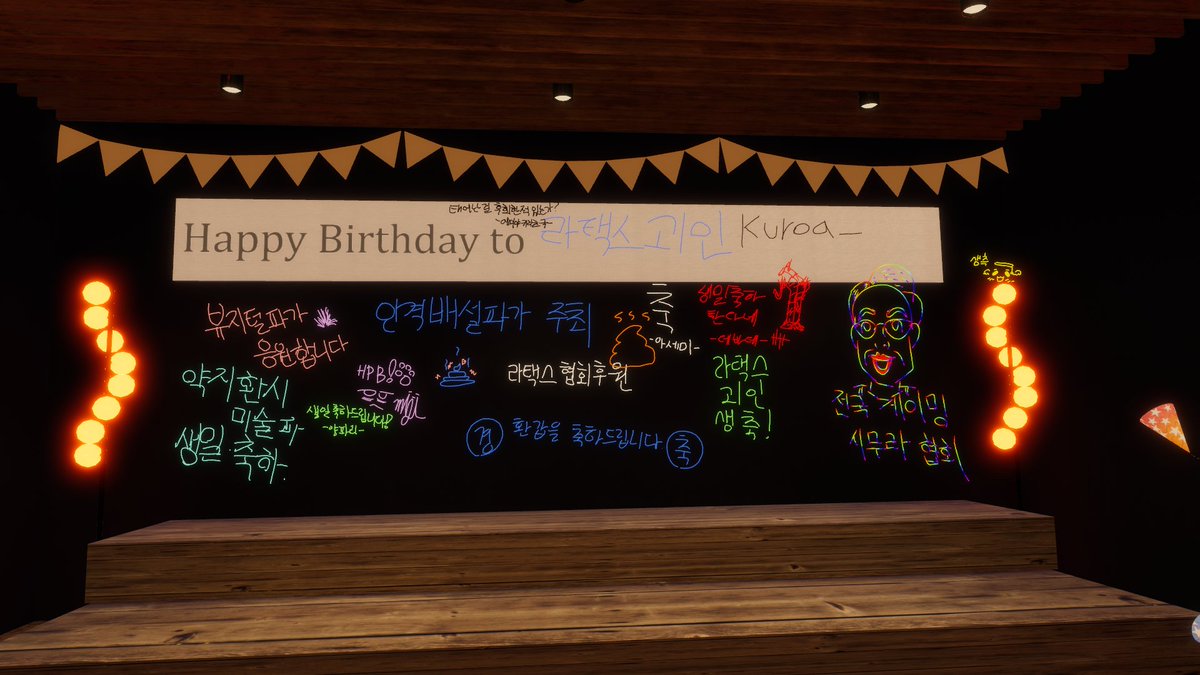 태어난걸 후회한적 있는가?
Happy Birthday to 라택스 괴인 Kuroa_
생축
뷰지털파가
응원합니다
인격배설파가 주최
축
축
-아세미-
생일축하
한다네
약지환시
미술파
생일 축하.
HPB
생일 축하드립니다!
-양파리-
라택스 협회후원
라택스
괴인
생축!
경 환갑을 축하드립니다 축
전국 게이밍
시무라 협회